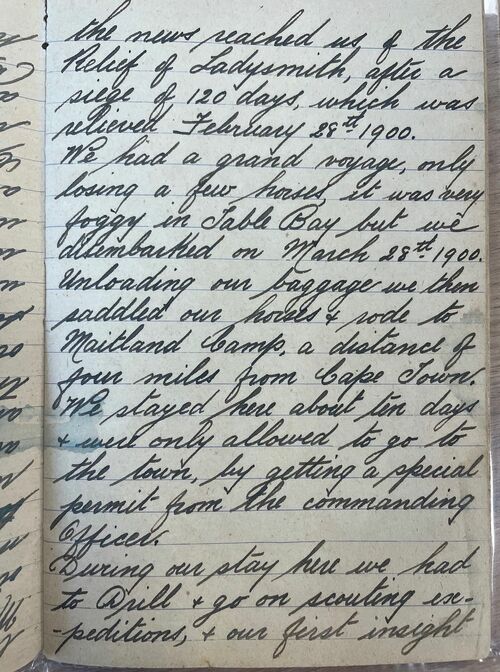 the news reached us, of the
Relief of Ladysmith, after a
siege of 120 days, which was
relieved February 28th 1900.
We had a grand voyage, only
losing a few horses, it was very
foggy in Table Bay but we
disembarked on March 28th 1900.
Unloading our baggage we then
saddled our horses & rode to
Maitland Camp, a distance of
four miles from Cape Town.
We stayed here about ten days
& were only allowed to go to
the town, by getting a special
permit from the commanding
Officer.
During our stay here we had
to Drill & go on scouting ex-
-peditions, & our first insight